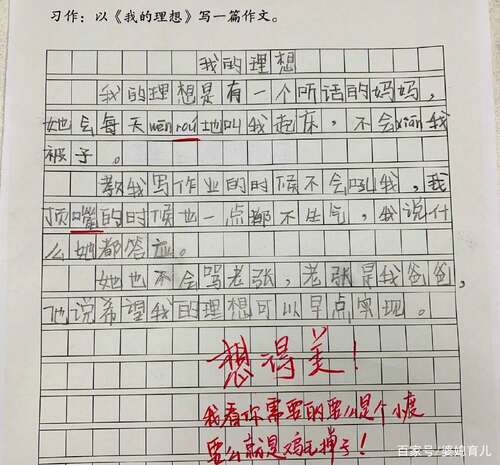 习作：以《我的理想》写一篇作文。
我的理想
我的理想是有一个听话的妈妈，
她会每天wēn rou地叫我起床，不会xiān我
被子。
教我写作业的时候不会吼我，我
顶嘴的时候也一点都不生气，我说什
么她都答应。
她也不会骂老张，老张是我爸爸，
他说希望我的理想可以早点实现。
想得美！
我看你需要的要么是个小度
要么就是鸡毛掸子！
百家号/婆媳育儿